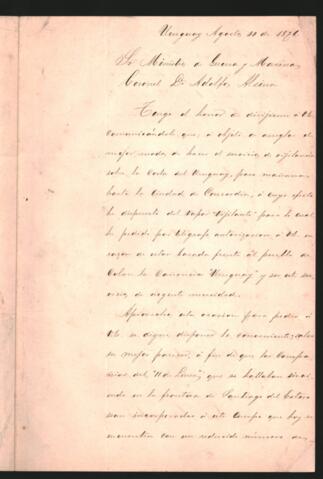 Uruguay Agosto 30 de 1876
Sr Ministro de Guerra y Marina
Coronel Dr Adolfo Alsina
Tengo el honor de dirijirme á V.E.
comunicándole que, á objeto de arreglar del
mejor modo, de hacer el servicio de vigilancia
sobre la Costa del Uruguay, paso mañana
hasta la Ciudad de Concordia, á cuyo efecto
he dispuesto del Vapor "Vigilante" para lo cual
he pedido por telégrafo autorizacion á V.E. en
razon de estar barada frente al pueblo de
Colon la Cañonera "Uruguay" y ser este ser
vicio de urgente necesidad.
Aprovecho esta ocasion para pedir á
V.E. se digne disponer lo conveniente, salvo
su mejor parecer, á fin de que las Compa
ñias del "11 de Linea", que se hallaban sirvi
endo en la frontera de Santiago del Estero
sean incorporadas á este Cuerpo que hoy se
encuentra con un reducido número de